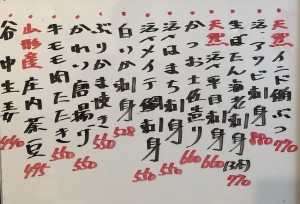 天然イナダ鯛ぶつ 770
活アワビ刺身 880
生ぼたん海老刺身(3本) 770
天然活平目刺身 660
かつお土佐造り 660
活はまち刺身 550
活〆メイチ鯛刺身 550
白いか刺身 528
ぶりかま焼き 550
かわり唐揚げ 550
牛モモ肉たたき 550
山形産庄内茶豆 495
谷中生姜 440